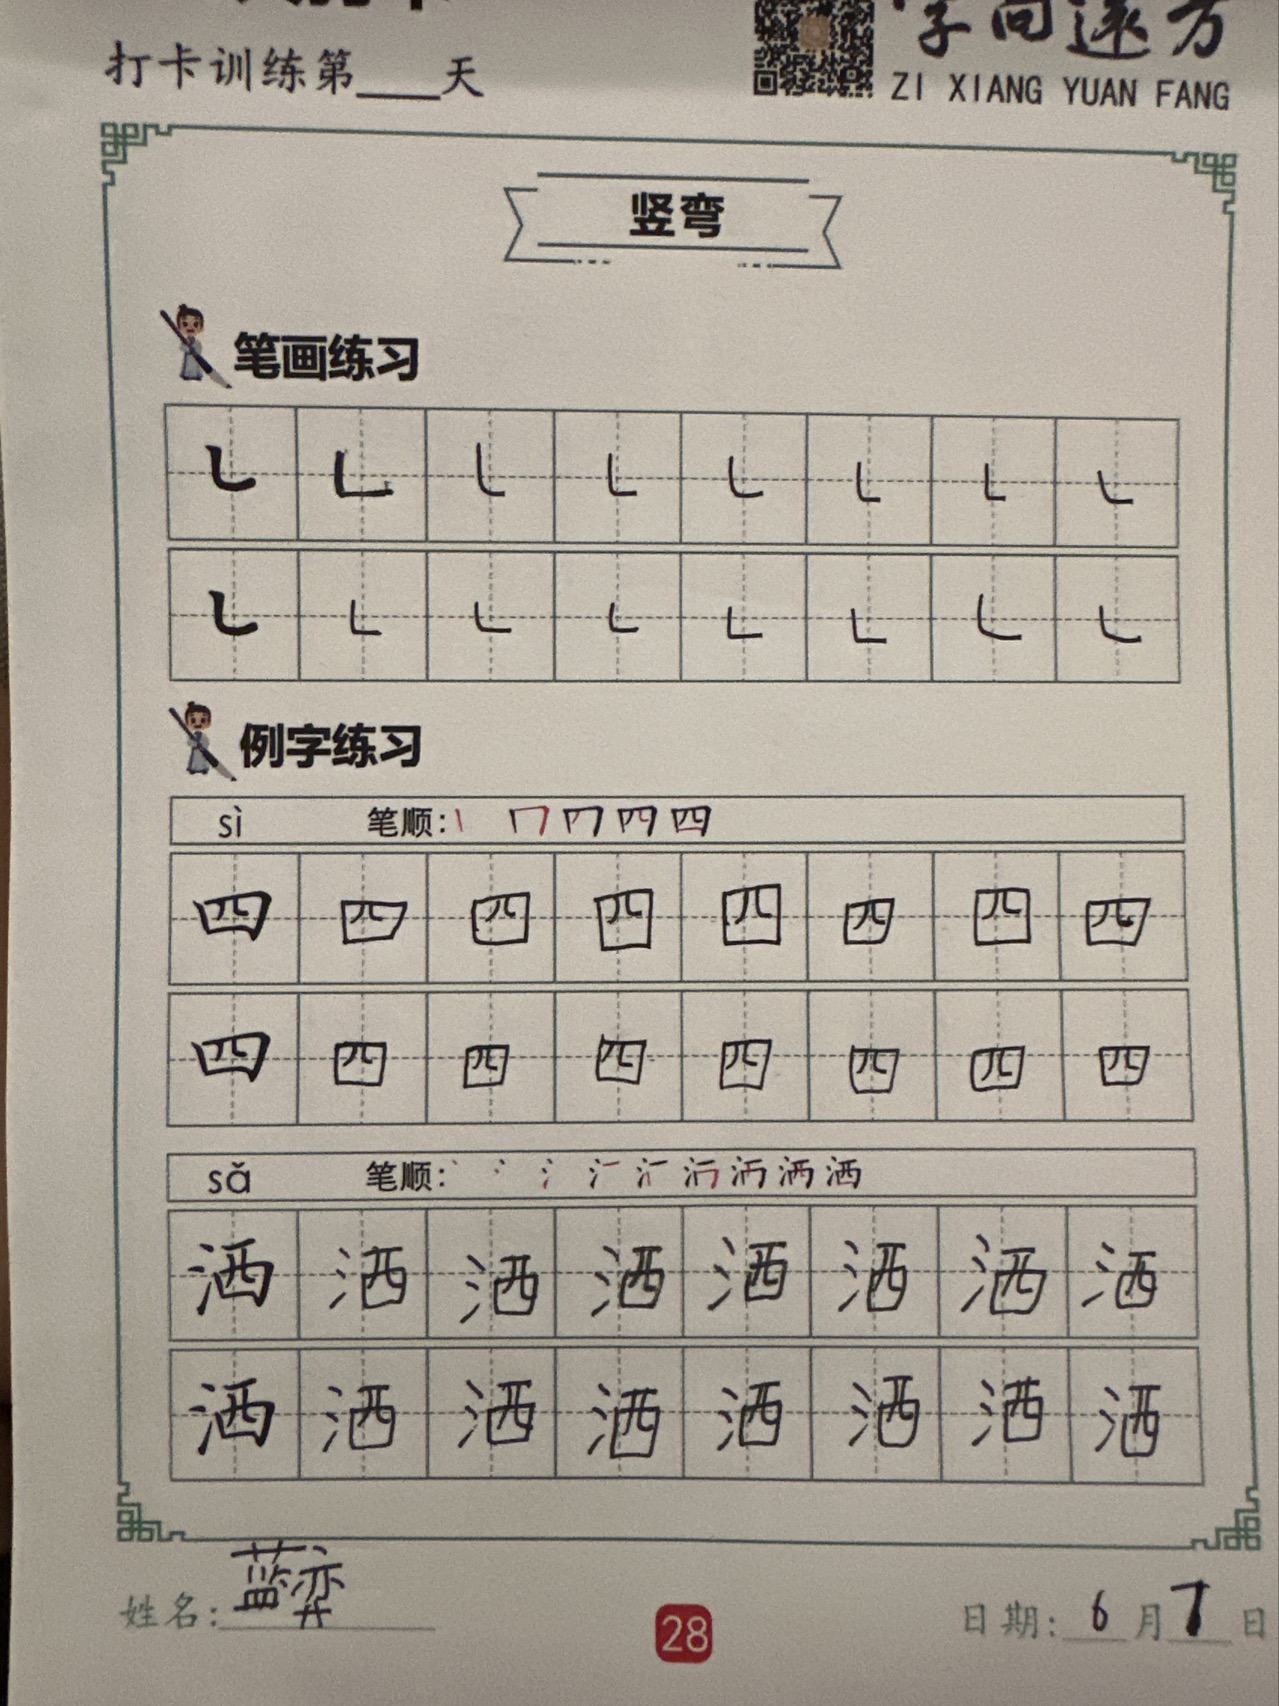 打卡训练第____天
字向远方
ZI XIANG YUAN FANG
竖弯
笔画练习
㇄ ㇄ ㇄ ㇄ ㇄ ㇄ ㇄ ㇄
㇄ ㇄ ㇄ ㇄ ㇄ ㇄ ㇄ ㇄
例字练习
sì 笔顺:
四 四 四 四 四 四 四 四
四 四 四 四 四 四 四 四
sǎ 笔顺:
洒 洒 洒 洒 洒 洒 洒 洒
洒 洒 洒 洒 洒 洒 洒 洒
姓名:蓝弈
28
日期: 6 月 7 日